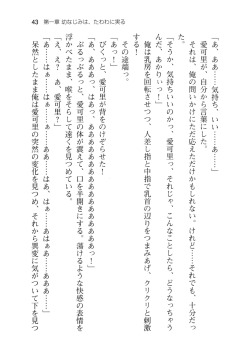 43　第一章 幼なじみは、たわわに実る
「あ、ああ……気持ち、いい……あ……」
　愛可里が、自分から言葉にした。
　それは、俺の問いかけにただ応じただけかもしれない。けど……それでも、十分だっ
た。
「そうか、気持ちいいのかっ、愛可里っ。それじゃ、こんなことしたら、どうなっちゃう
んだ、あかりぃっ！」
　俺は乳房を回転させつつ、人差し指と中指で乳首の辺りをつまみあげ、クリクリと刺激
する！
　その途端っ。
「あっ！」
　びくっと、愛可里が背をのけぞらせた！
「あ、あああっ、はぁ、ああああああああああっ！」
　ぶるっぶるっと、愛可里の体が震えて、口を半開きにする。蕩けるような快感の表情を
浮かべたまま、喉をそらして遠くを見つめている。
「え？　あ、愛可里？」
「あ……はぁ……はぁ……あ、はぁ……あぁ……ああ……」
　呆然としたまま俺は愛可里の突然の変化を見つめ、それから異変に気がついて下を見つ